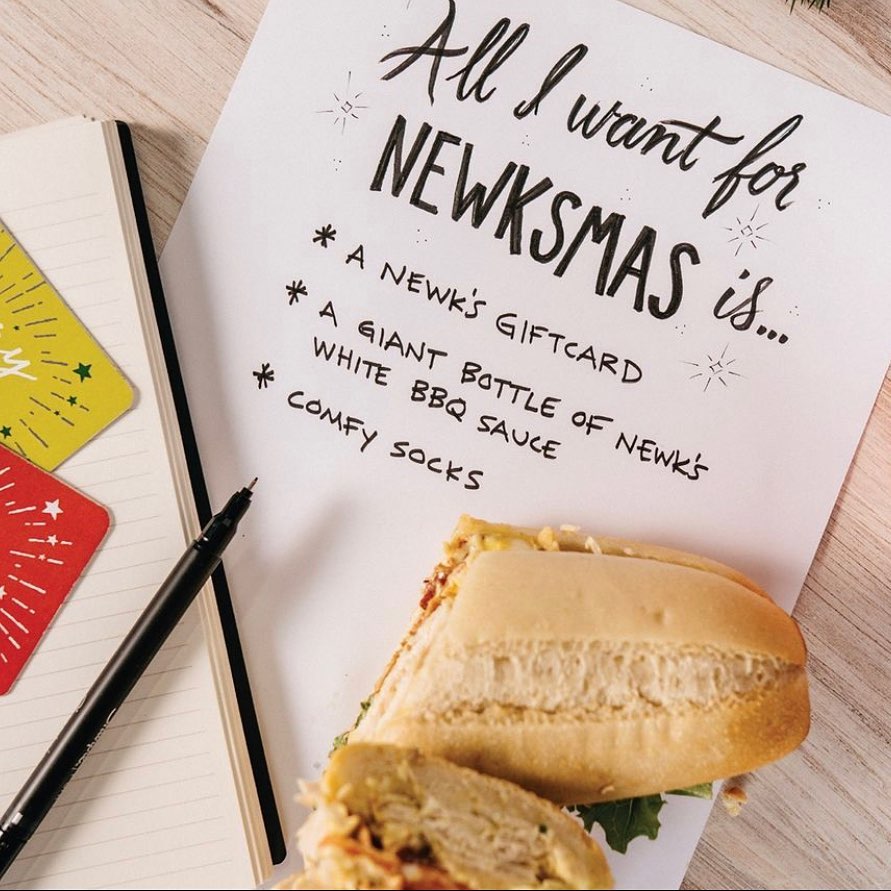 All I want for
NEWKSMAS is...
* A NEWK'S GIFTCARD
* A GIANT BOTTLE OF NEWK'S
WHITE BBQ SAUCE
* COMFY SOCKS